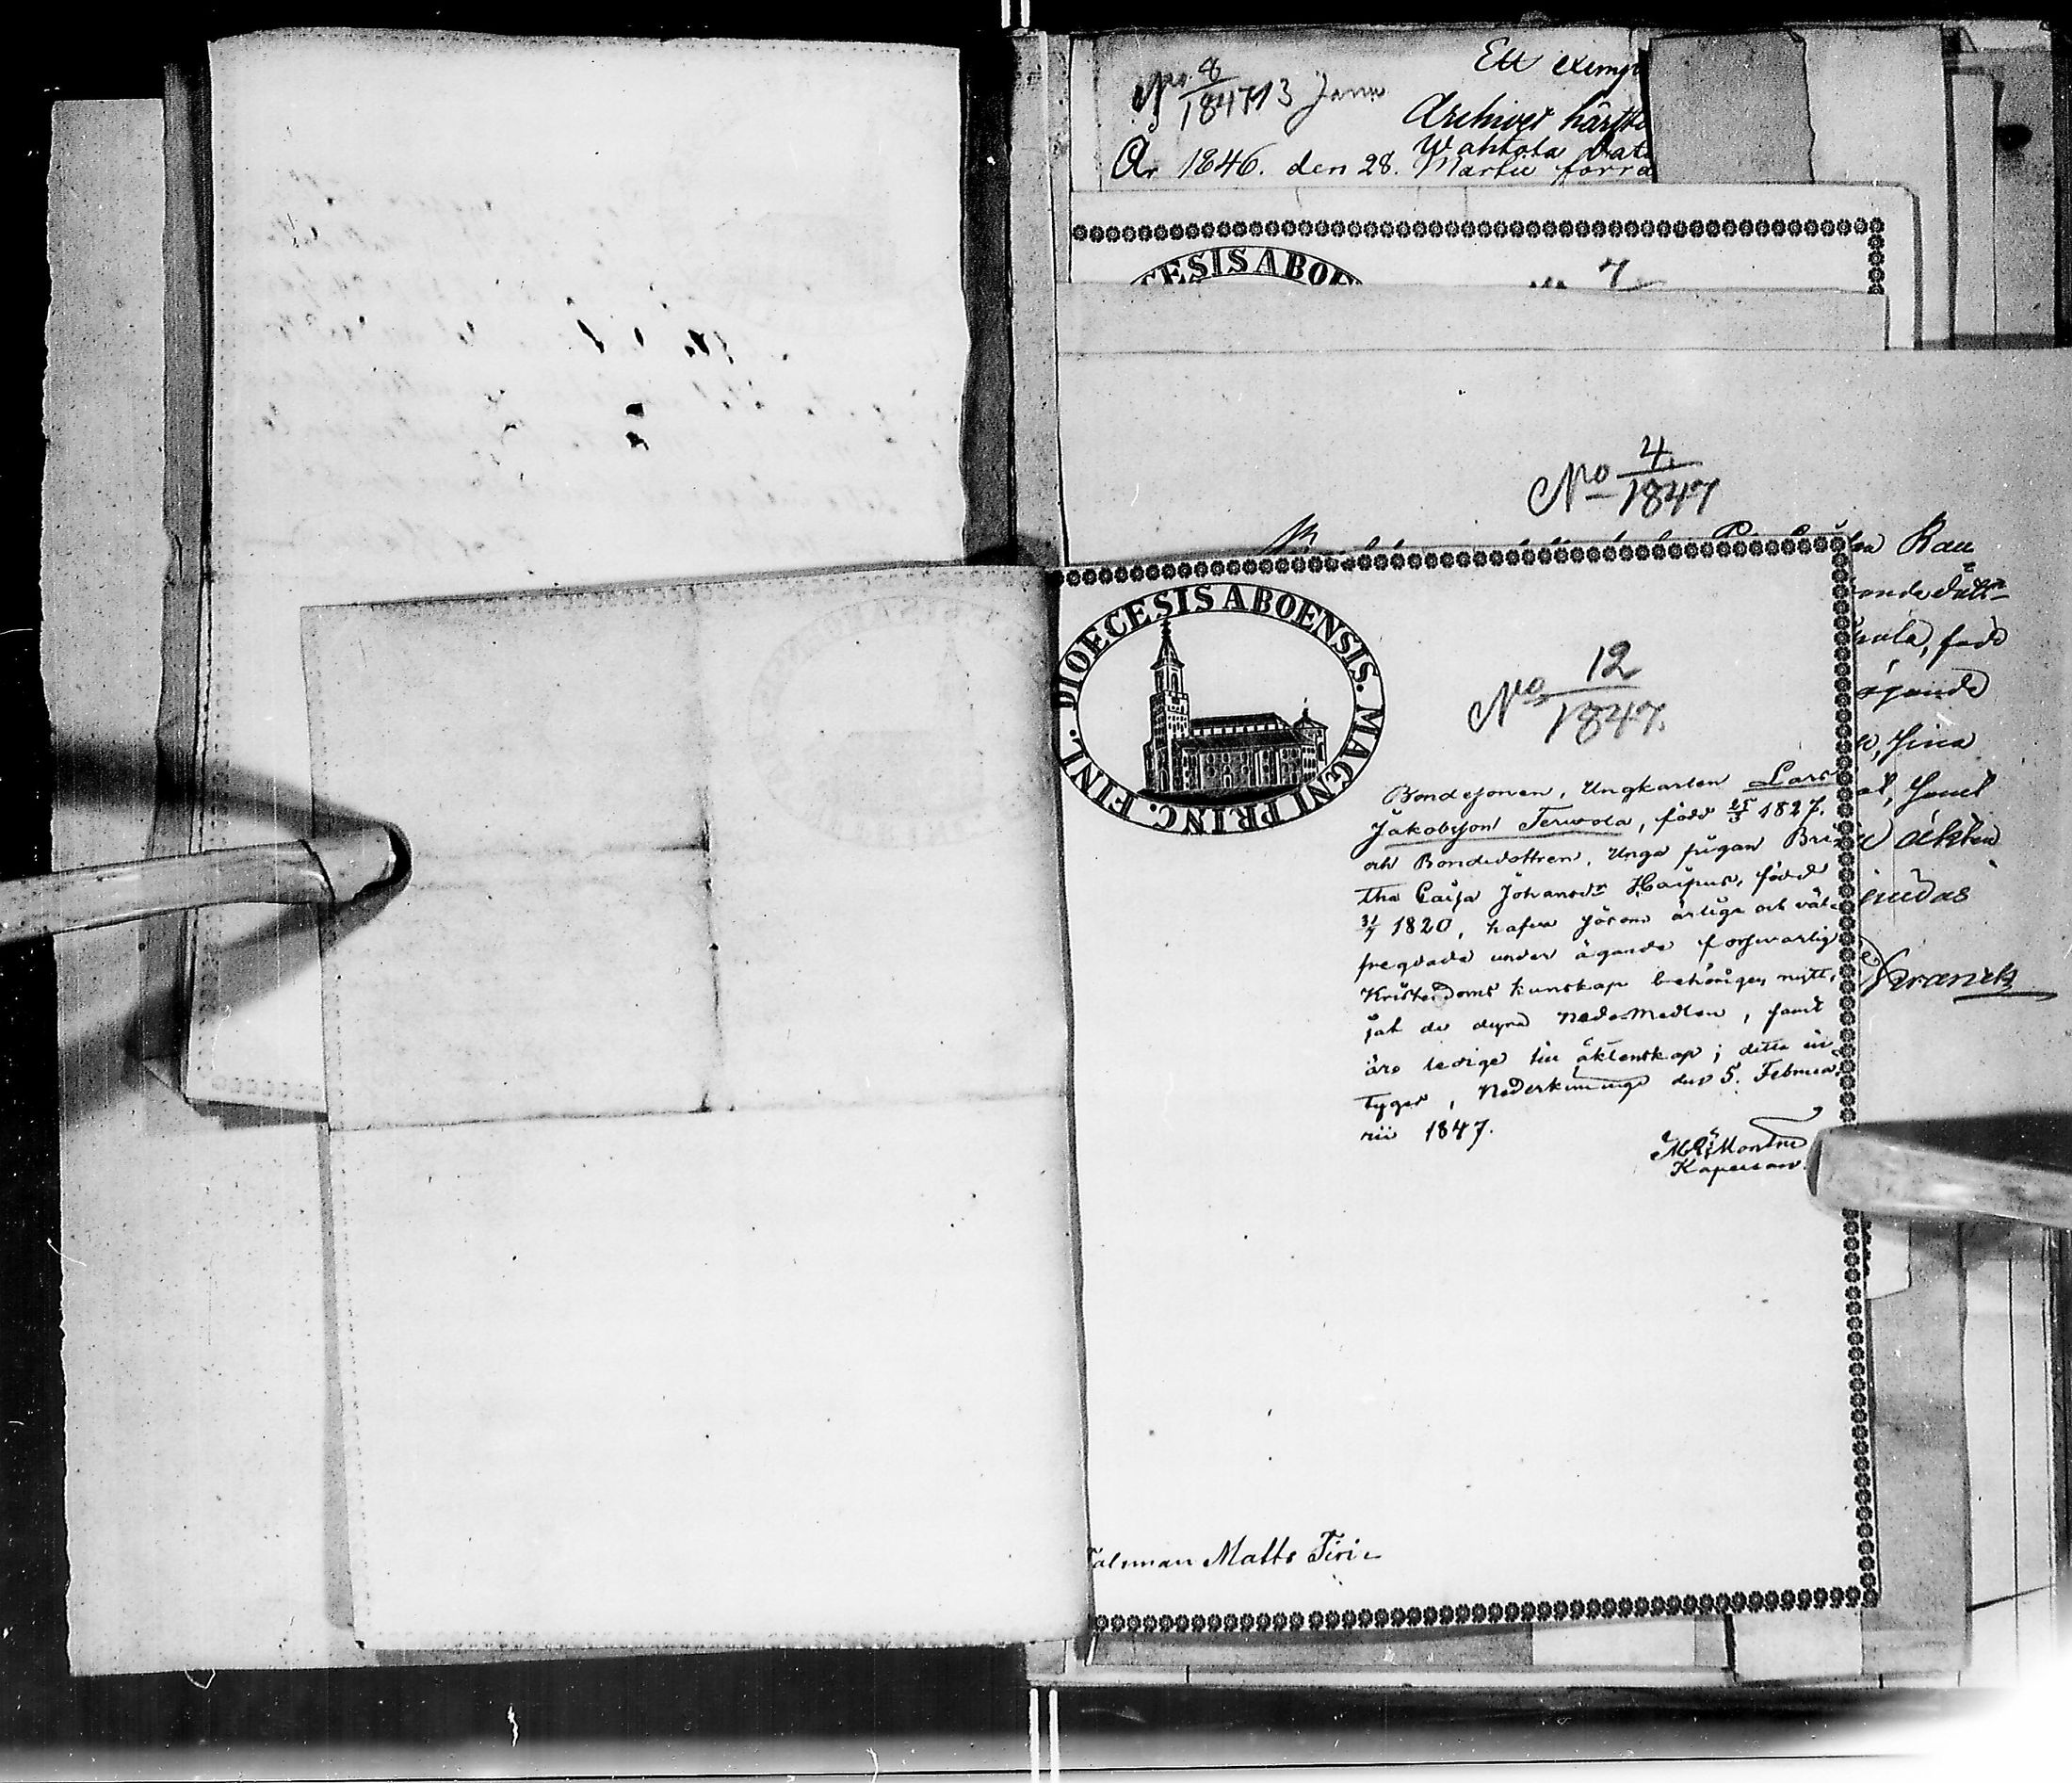 No 8
1847 13 Janu
Ett exemp
Archivet härst
Wahtola
År 1846. den 28. Martii förra
CESIS ABOE
7
No 4
1847
Rau
ondedottr
fodd
Samt
äkten
judas
DIOECESIS ABOENSIS. MAGNI PRINC. FINL.
No 12
1847.
Bondesonen, Ungkarlen Lars
Jakobsson Terwola, född 25/3 1827.
och Bondedottren, Unga pigan Bri
tha Caisa Johansdr Haipus, född
1820, hafva jörom ärliga och väl
fregdade under ägande försvarlig
Kristendoms kunskap behörigen nytt
jat de dyra Nådemedlen, samt
äro ledige till äktenskap; detta in
tyges, Nederkimingi den 5. Februa
rii 1847.
Kapellan.
Talsman Matts Tiri